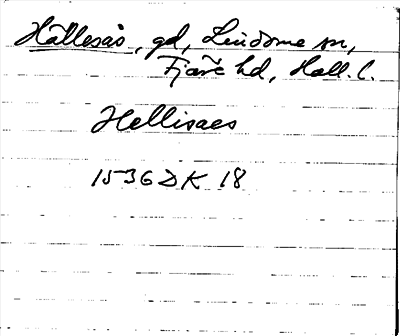 Hällesås, gd, Lindome sn,
Fjäre hd, Hall. l.
Hellisaes
1536 DK 18